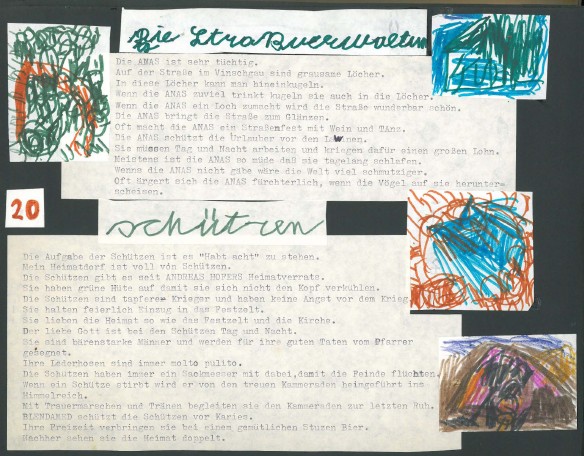 Die Straßverwaltun
Die ANAS ist sehr tüchtig.
Auf der Straße im Vinschgau sind grausame Löcher.
In diese Löcher kann man hineinkugeln.
Wenn die ANAS zuviel trinkt kugeln sie auch in die Löcher.
Wenn die ANAS ein Loch zumacht wird die Straße wunderbar schön.
Die ANAS bringt die Straße zum Glänzen.
Oft mächt die ANAS ein Straßenfest mit Wein und TAnz.
Die ANAS schützt die Urlauber vor den Lawinen.
Sie müssen Tag und Nacht arbeiten und kriegen dafür einen großen Lohn.
Meistens ist die ANAS so müde daß sie tagelang schlafen.
Wenns die ANAS nicht gäbe wäre die Welt viel schmutziger.
Oft ärgert sich die ANAS fürchterlich, wenn die Vögel auf sie herunter-
scheisen.
20
schützen
Die Aufgabe der Schützen ist es "Habt acht" zu stehen.
Mein Heimatdorf ist voll von Schützen.
Die Schützen gibt es seit ANDREAS HOFERS Heimatverrats.
Sie haben grüne Hüte auf damit sie sich nicht den Kopf verkühlen.
Die Schützen sind tapfere Krieger und haben keine Angst vor dem Krieg.
Sie halten feierlich Einzug in das Festzelt.
Sie lieben die Heimat so wie das Festzelt und die Kirche.
Der liebe Gott ist bei den Schützen Tag und Nacht.
Sie sind bärenstarke Männer und werden für ihre guten Taten vom Pfarrer
gesegnet.
Ihre Lederhosen sind immer molto pulito.
Die Schützen haben immer ein Sackmesser mit dabei,damit die Feinde flüchten.
Wenn ein Schütze stirbt wird er von den treuen Kammeraden heimgeführt ins
Himmelreich.
Mit Trauermarschen und Tränen begleiten sie den Kammeraden zur letzten Ruh.
BLENDAMED schützt die Schützen vor Karies.
Ihre Freizeit verbringen sie bei einem gemütlichen Stuzen Bier.
Nachher sehen sie die Heimat doppelt.